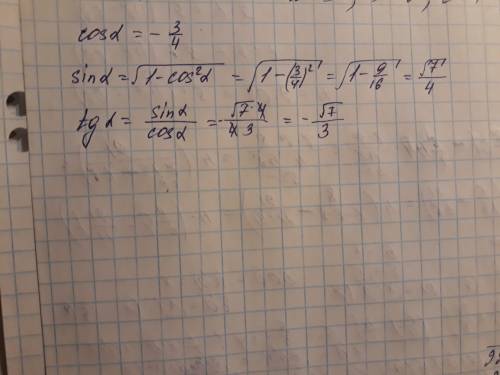 cosα = - 3/4
sinα = √(1-cos²α) = √(1-(3/4)²) = √(1-9/16) = √7/4
tgα = sinα/cosα = -√7·4/4·3 = -√7/3